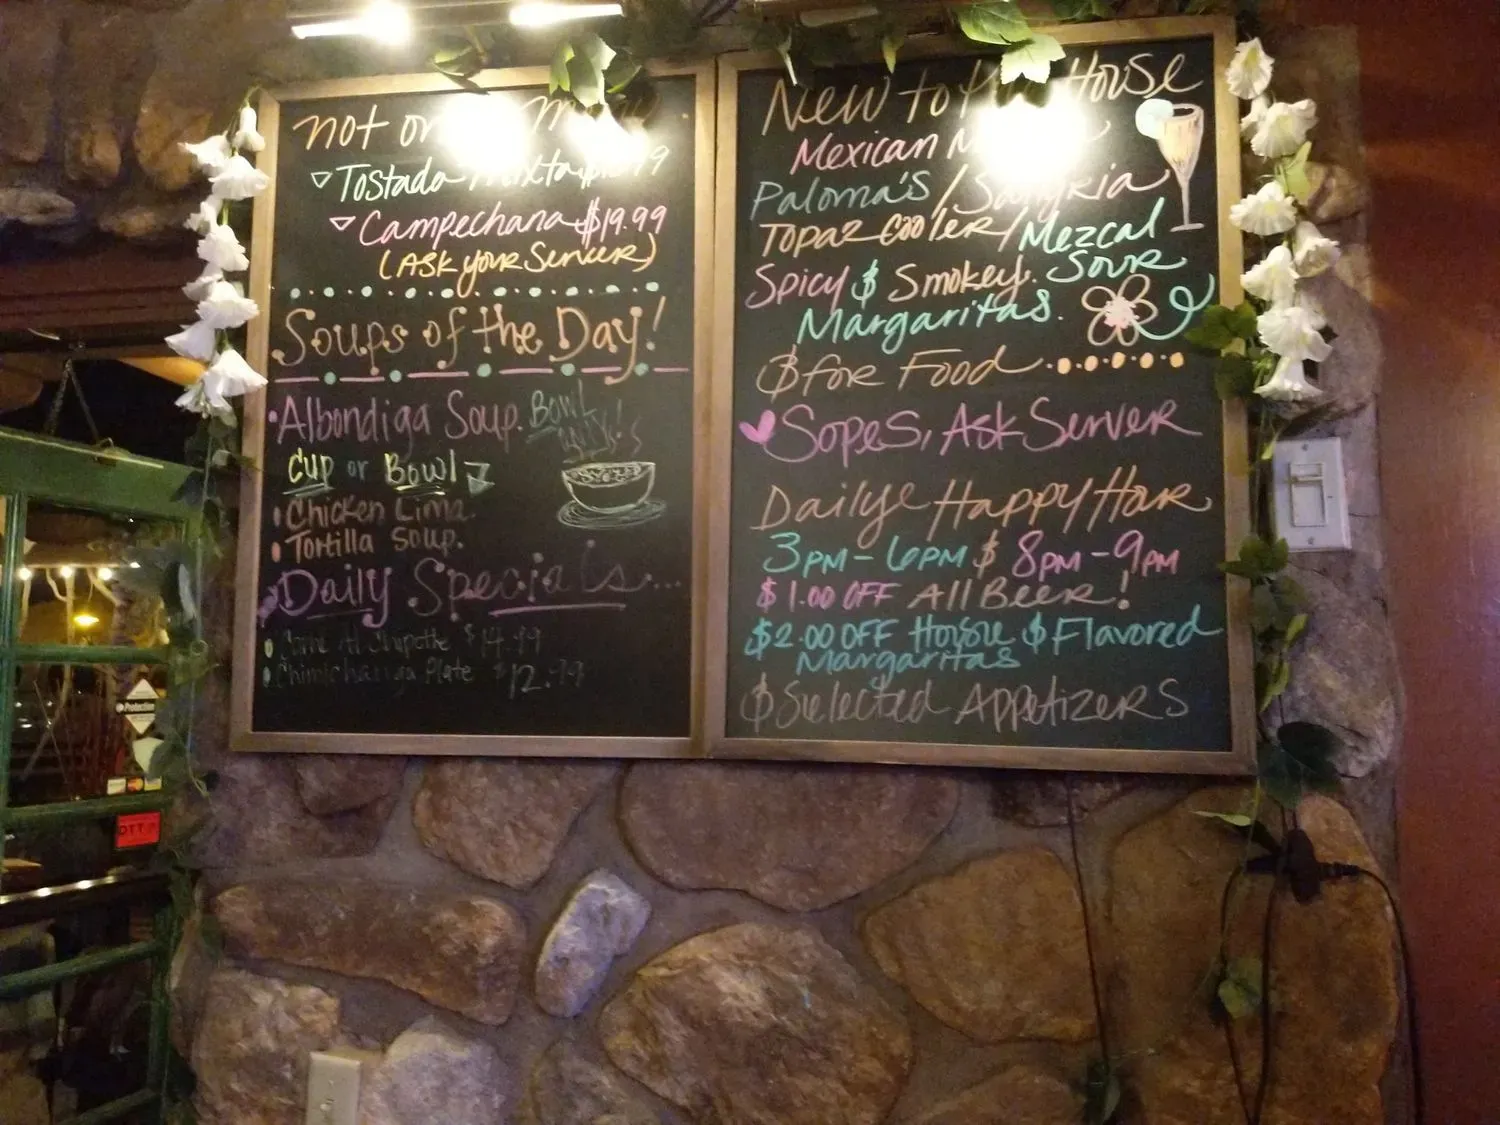 not on
Tostada Mixta
Campechana $19.99
(Ask your Server)
Soups of the Day!
Albondiga Soup. Bowl
Only!
Cup or Bowl
Chicken Lima
Tortilla Soup.
Daily Specials...
Chipotle $14.99
Chimichanga Plate $12.99
New to House
Mexican
Paloma's / Sangria
Topaz Cooler / Mezcal
Sour
Spicy & Smokey
Margaritas.
& for Food
Sopes, Ask Server
Daily Happy Hour
3pm - 6pm & 8pm - 9pm
$1.00 OFF All Beer!
$2.00 OFF House & Flavored
Margaritas
& Selected Appetizers
Protection